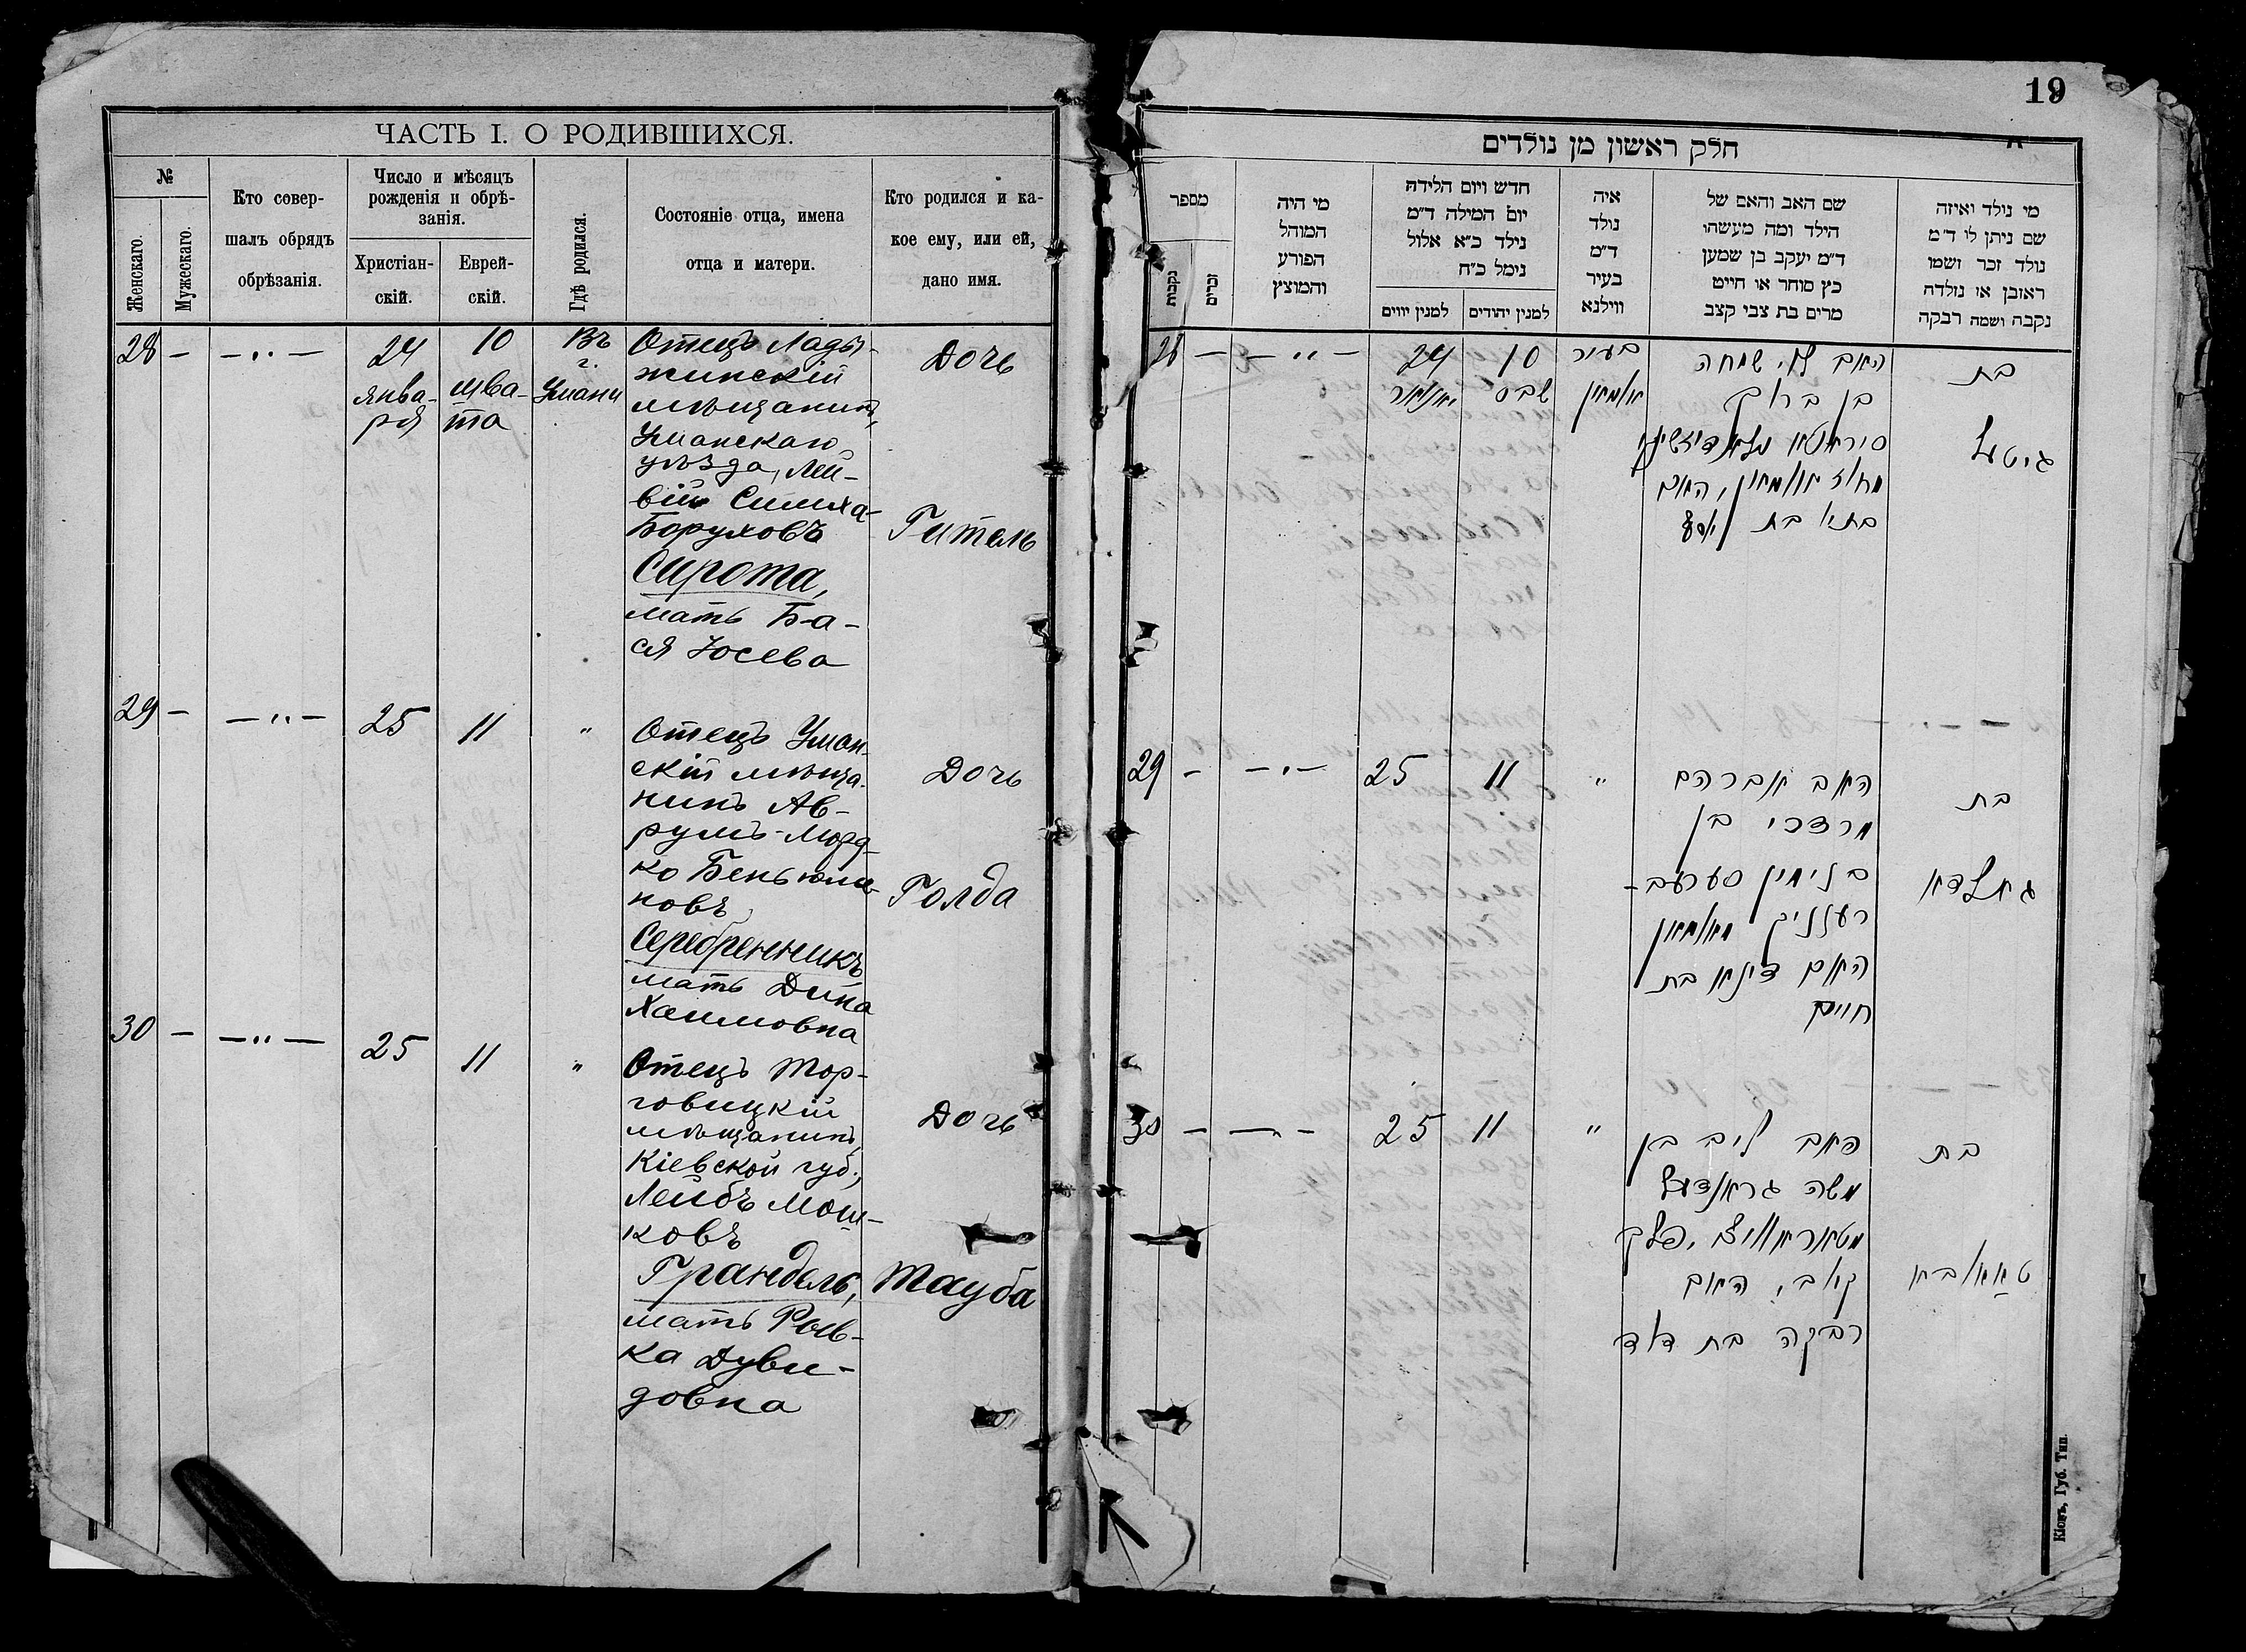 ЧАСТЬ I. О РОДИВШИХСЯ.
№
Женскаго.
Мужескаго.
Кто совер-
шалъ обрядъ
обрѣзанія.
Число и мѣсяцъ
рожденія и обрѣ-
занія.
Христіан-
скій.
Еврей-
скій.
Гдѣ родился.
Состояніе отца, имена
отца и матери.
Кто родился и ка-
кое ему, или ей,
дано имя.
28 — — " —
24
янва-
ря
10
шва-
та
Въ
г.
Умани
Отецъ Лады-
жинскій
мѣщанинъ,
Уманскаго
уѣзда, Лей-
вій Симха-
Боруховъ
Сирота,
мать Ба-
ся Іосева
Дочь
Гитель
29 — — " — 25 11 "
Отецъ Уман-
скій мѣща-
нинъ Ав-
румъ-Морд-
ко Беньями-
новъ
Серебренникъ
мать Дина
Хаимовна
Дочь
Голда
30 — — " — 25 11 "
Отецъ Тор-
говицкій
мѣщанинъ,
Кіевской губ.,
Лейбъ Мош-
ковъ
Грандель,
мать Рыв-
ка Дуви-
довна
Дочь
Тауба
19
חלק ראשון מן נולדים
מספר
נקבות
זכרים
מי היה
המוהל
הפורע
והמוצץ
חדש ויום הלידה
יום המילה ד"מ
נילד כ"א אלול
נימל כ"ח
למנין יווים
למנין יהודים
איה
נולד
ד"מ
בעיר
ווילנא
שם האב והאם של
הילד ומה מעשהו
ד"מ יעקב בן שמען
כץ סוחר או חייט
מרים בת צבי קצב
מי נולד ואיזה
שם ניתן לו ד"מ
נולד זכר ושמו
ראובן או נולדה
נקבה ושמה רבקה
28 — — " —
24
יאנואר
10
שבט
בעיר
אומאן
האב לוי שמחה
בן ברוך
סיראטא
מחוז אומאן, האם
בתיא בת
בת
גיטעל
29 — — " — 25 11 "
האב אברהם
מרדכי בן
בנימין סערעב-
רעניק מאומאן
האם דינא בת
חיים
בת
גאלדא
30 — — " — 25 11 "
האב ליב בן
משה גראנדעל
פלך
קיוב, האם
רבקה בת דוד
בת
טאובא
Кіевъ, Губ. Тип.